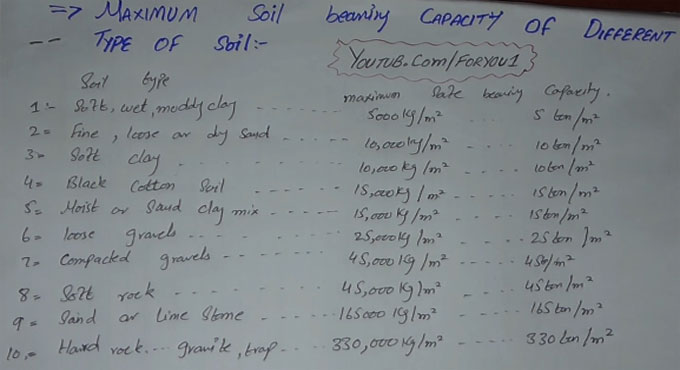 => MAXIMUM Soil bearing CAPACITY OF DIFFERENT
-- TYPE OF Soil:-
YOUTUB.Com/FORYOU1
Soil type maximum Safe bearing Capacity.
1:- Soft, wet, moddy clay ---- 5000 kg/m² --- 5 ton/m²
2= Fine, loose or dry Sand ---- 10,000 kg/m² ---- 10 ton/m²
3= Soft clay ---- 10,000 kg/m² ---- 10 ton/m²
4= Black Cotton Soil ---- 15,000 kg/m² ---- 15 ton/m²
5= Moist or Sand clay mix ---- 15,000 kg/m² ---- 15 ton/m²
6= loose gravels ---- 25,000 kg/m² ---- 25 ton/m²
7= Compacted gravels ---- 45,000 kg/m² ---- 45t/m²
8= Soft rock ---- 45,000 kg/m² ---- 45 ton/m²
9= Sand or Lime Stone ---- 165000 kg/m² ---- 165 ton/m²
10.= Hard rock... granite, trap ---- 330,000 kg/m² ---- 330 ton/m²